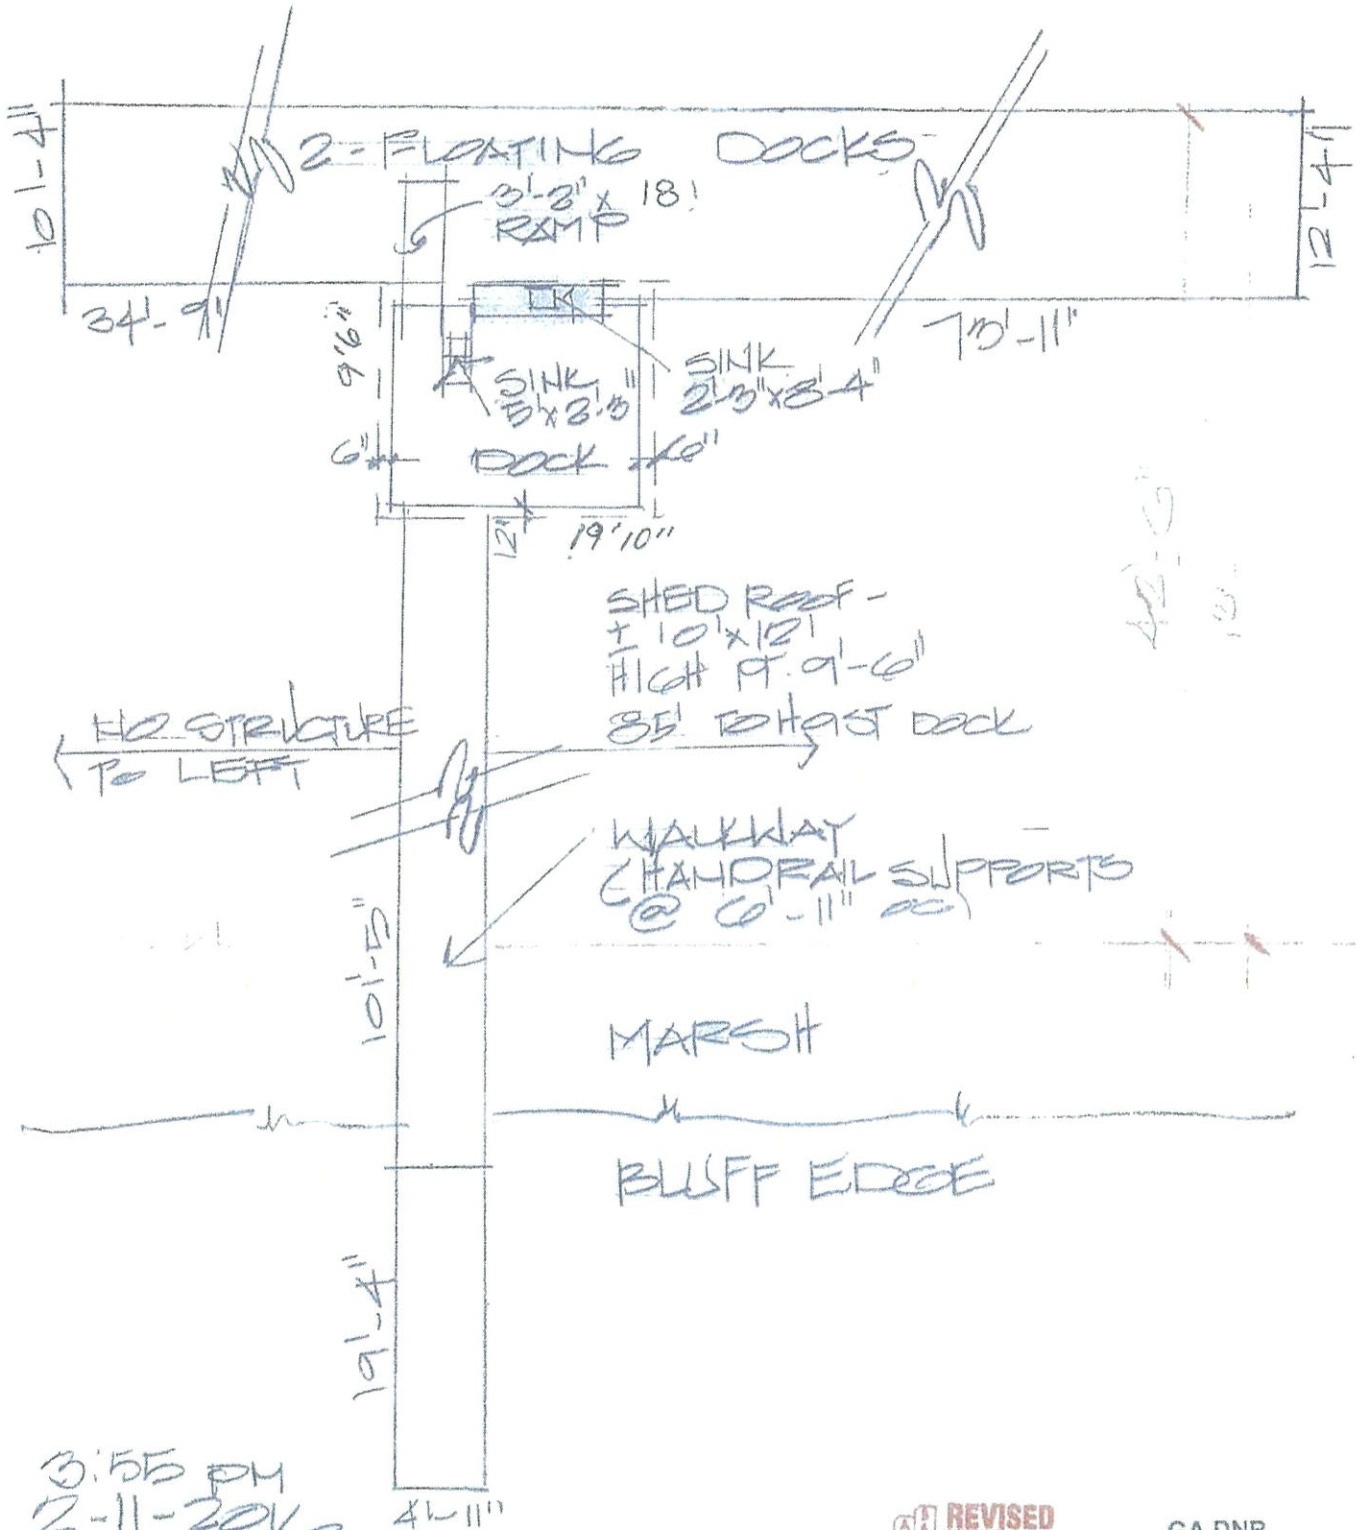 10'-4"
2-FLOATING DOCKS
3'-2" x 18'
RAMP
12'-4"
34'-9"
73'-11"
9'6"
SINK
5'x2'-3"
SINK
2'-3"x8'-4"
6"
DOCK
6"
12'
19'10"
SHED ROOF -
± 10'x12'
HIGH PT. 9'-6"
35' TO HOIST DOCK
NO STRUCTURE
TO LEFT
WALKWAY
(HANDRAIL SUPPORTS
@ 6'-11" OC)
101'-5"
MARSH
BLUFF EDGE
19'-4"
3:55 PM
4'-11"
REVISED
GA DNR